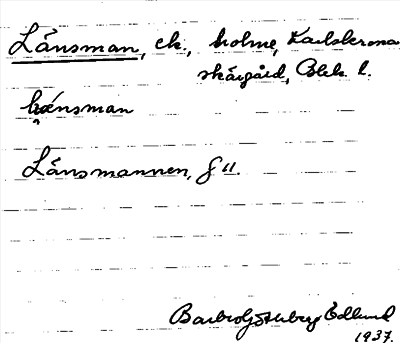 Länsman, ek., holme, Karlskrona
skärgård, Blek. l.
lænsman
Länsmannen, G 11.
Barbro Söderberg Edlund
1937.